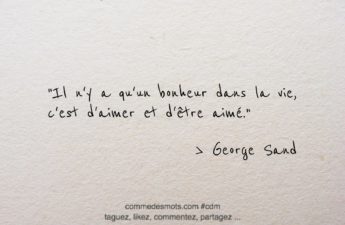 "Il n'y a qu'un bonheur dans la vie,
c'est d'aimer et d'être aimé."
> George Sand
commedesmots.com #cdm
taguez, likez, commentez, partagez ...